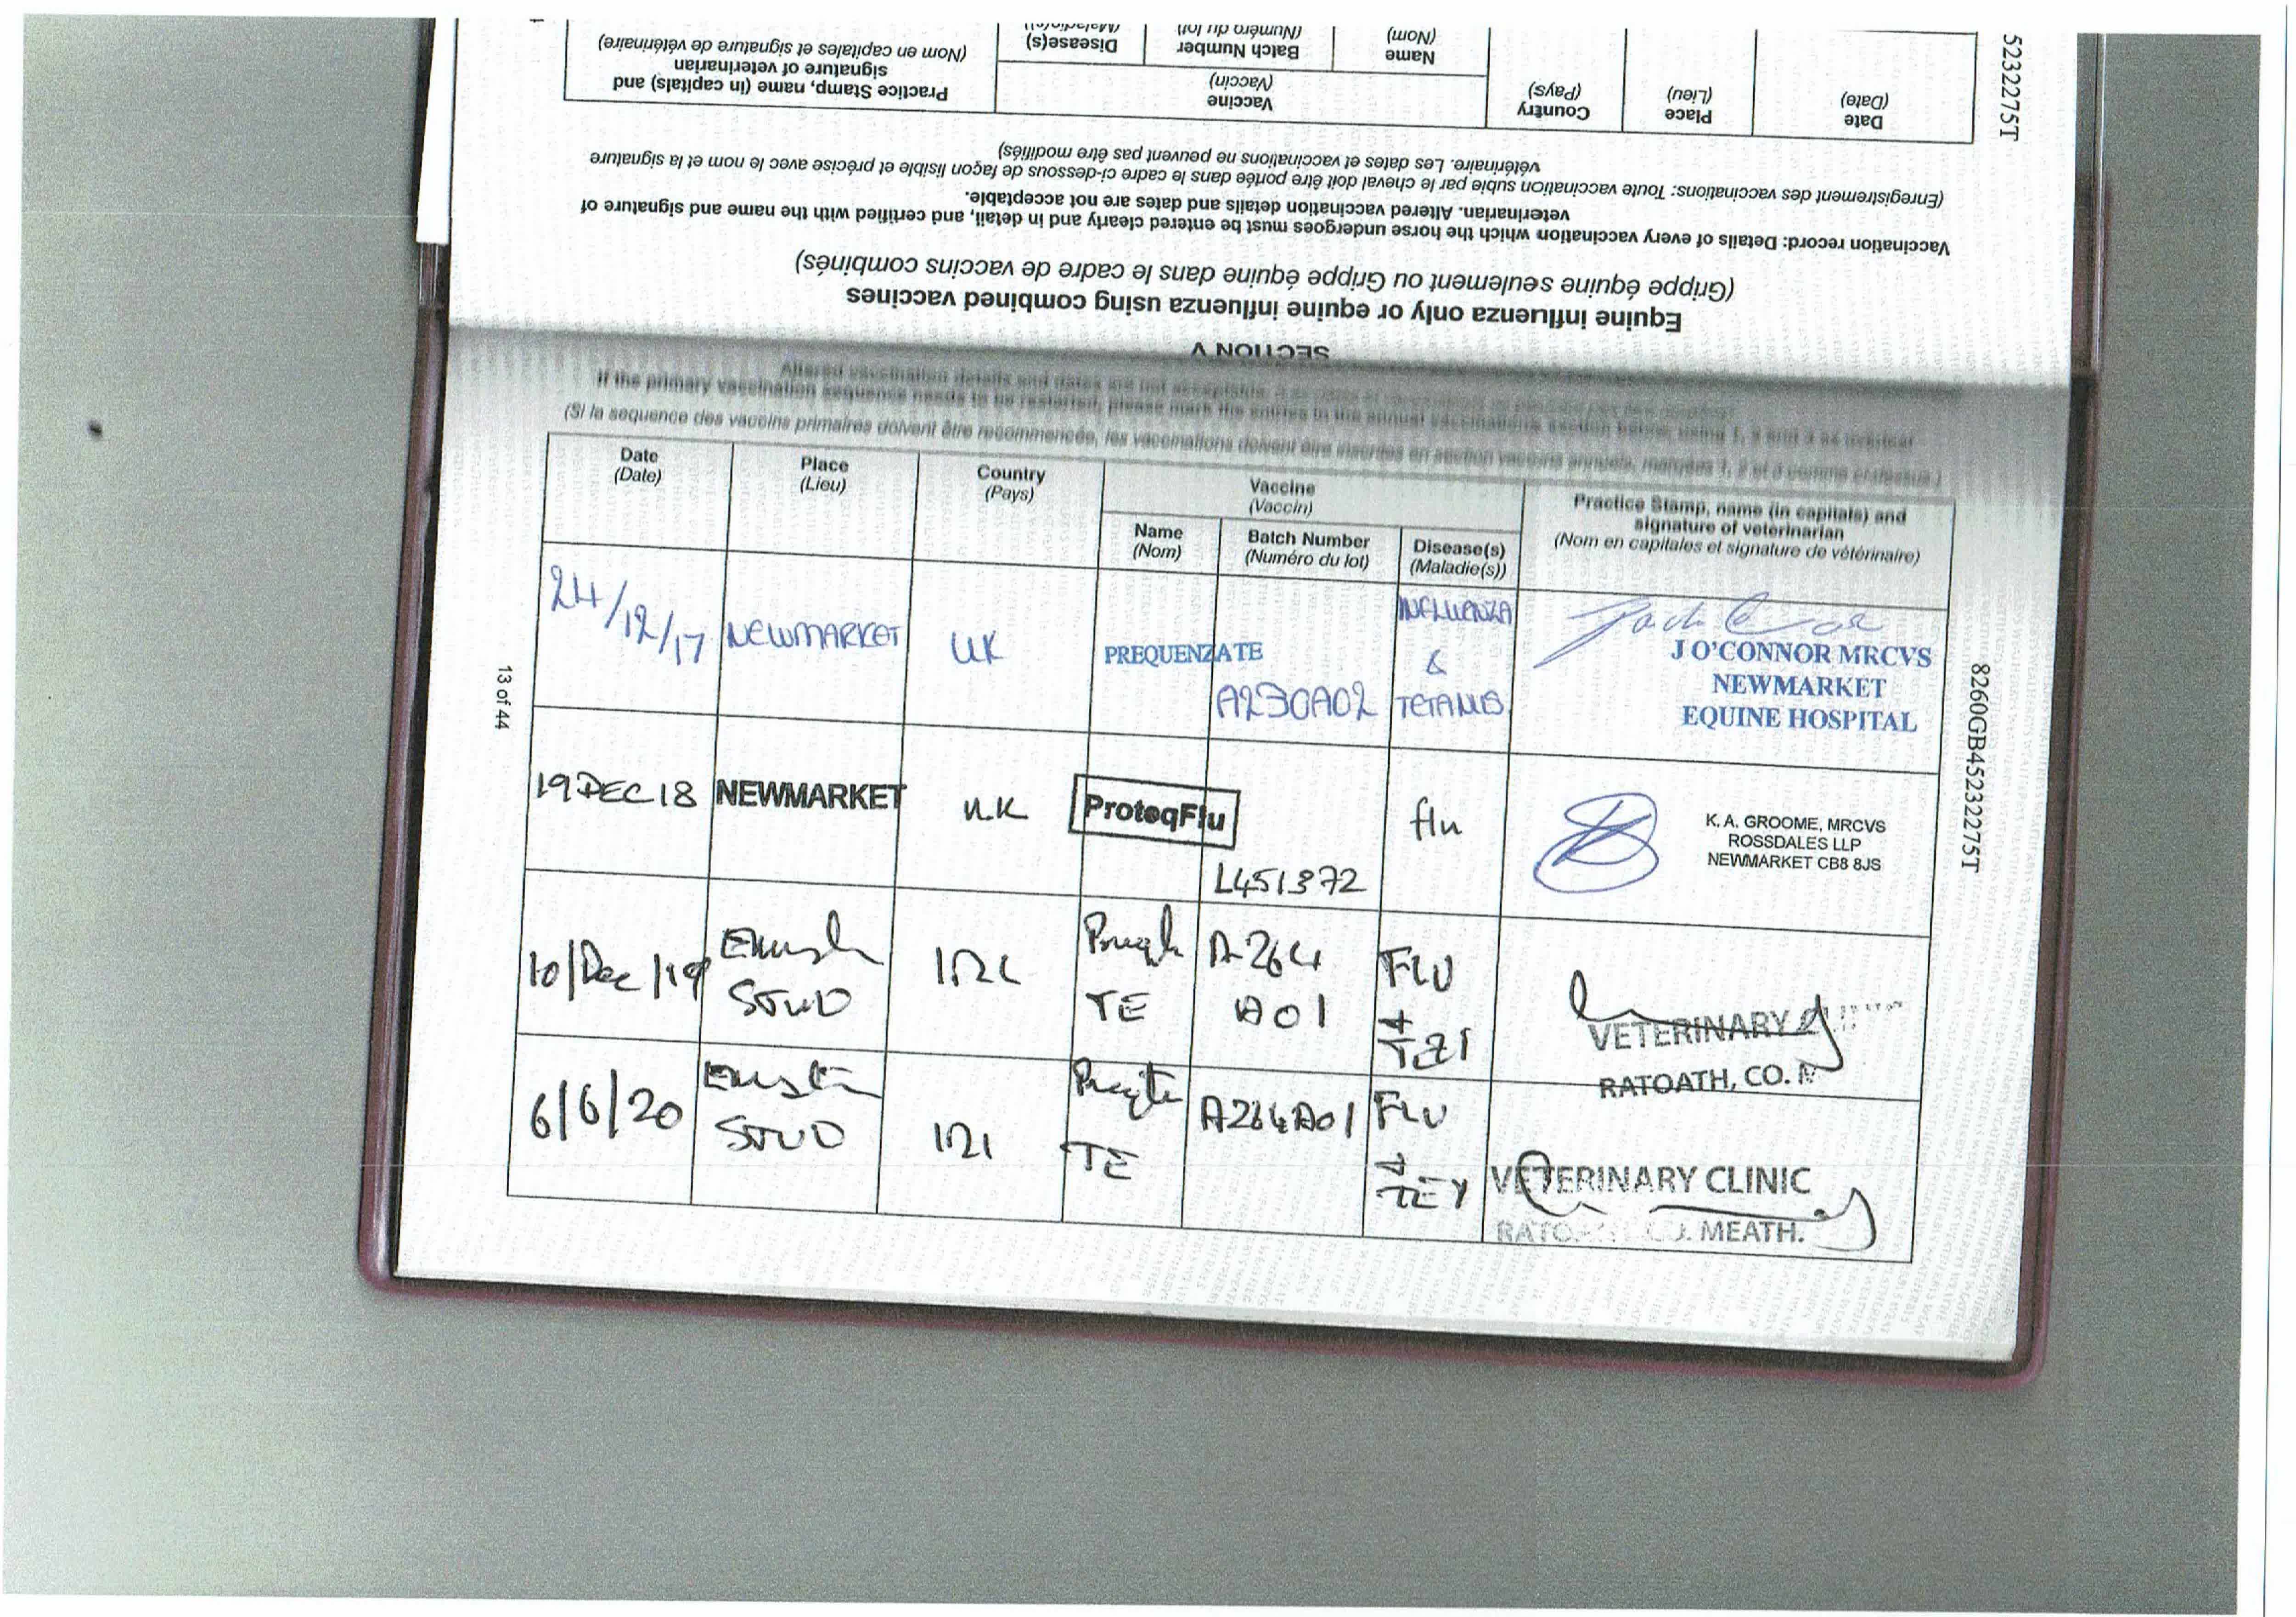 52322275T
SECTION V
Equine influenza only or equine influenza using combined vaccines
(Grippe équine seulement ou Grippe équine dans le cadre de vaccins combinés)
Vaccination record: Details of every vaccination which the horse undergoes must be entered clearly and in detail, and certified with the name and signature of
veterinarian. Altered vaccination details and dates are not acceptable.
(Enregistrement des vaccinations: Toute vaccination subie par le cheval doit être portée dans le cadre ci-dessous de façon lisible et précise avec le nom et la signature
vétérinaire. Les dates et vaccinations ne peuvent pas être modifiés)
Date
(Date)
Place
(Lieu)
Country
(Pays)
Vaccine
(Vaccin)
Name
(Nom)
Batch Number
(Numéro du lot)
Disease(s)
(Maladie(s))
Practice Stamp, name (in capitals) and
signature of veterinarian
(Nom en capitales et signature de vétérinaire)
Altered vaccination details and dates are not acceptable.
If the primary vaccination sequence needs to be restarted, please mark the entries in the annual vaccinations section below, using 1, 2 and 3 as
(Si la sequence des vaccins primaires doivent être recommencée, les vaccinations doivent être inscrites en section vaccins annuels, marquées 1, 2 et 3 comme ci-dessus.)
Date
(Date)
Place
(Lieu)
Country
(Pays)
Vaccine
(Vaccin)
Name
(Nom)
Batch Number
(Numéro du lot)
Disease(s)
(Maladie(s))
Practice Stamp, name (in capitals) and
signature of veterinarian
(Nom en capitales et signature de vétérinaire)
24/12/17
NEWMARKET
UK
PREQUENZA TE
A230A02
INFLUENZA
&
TETANUS
J O'CONNOR MRCVS
NEWMARKET
EQUINE HOSPITAL
19 DEC 18
NEWMARKET
UK
ProteqFlu
L451372
flu
K. A. GROOME, MRCVS
ROSSDALES LLP
NEWMARKET CB8 8JS
10/Dec/19
STUD
IRL
TE
A264
A01
FLU
+
VETERINARY
RATOATH, CO.
6/6/20
STUD
IRL
TE
A264A01
FLU
+
VETERINARY CLINIC
RATOATH CO. MEATH.
13 of 44
8260GB45232275T